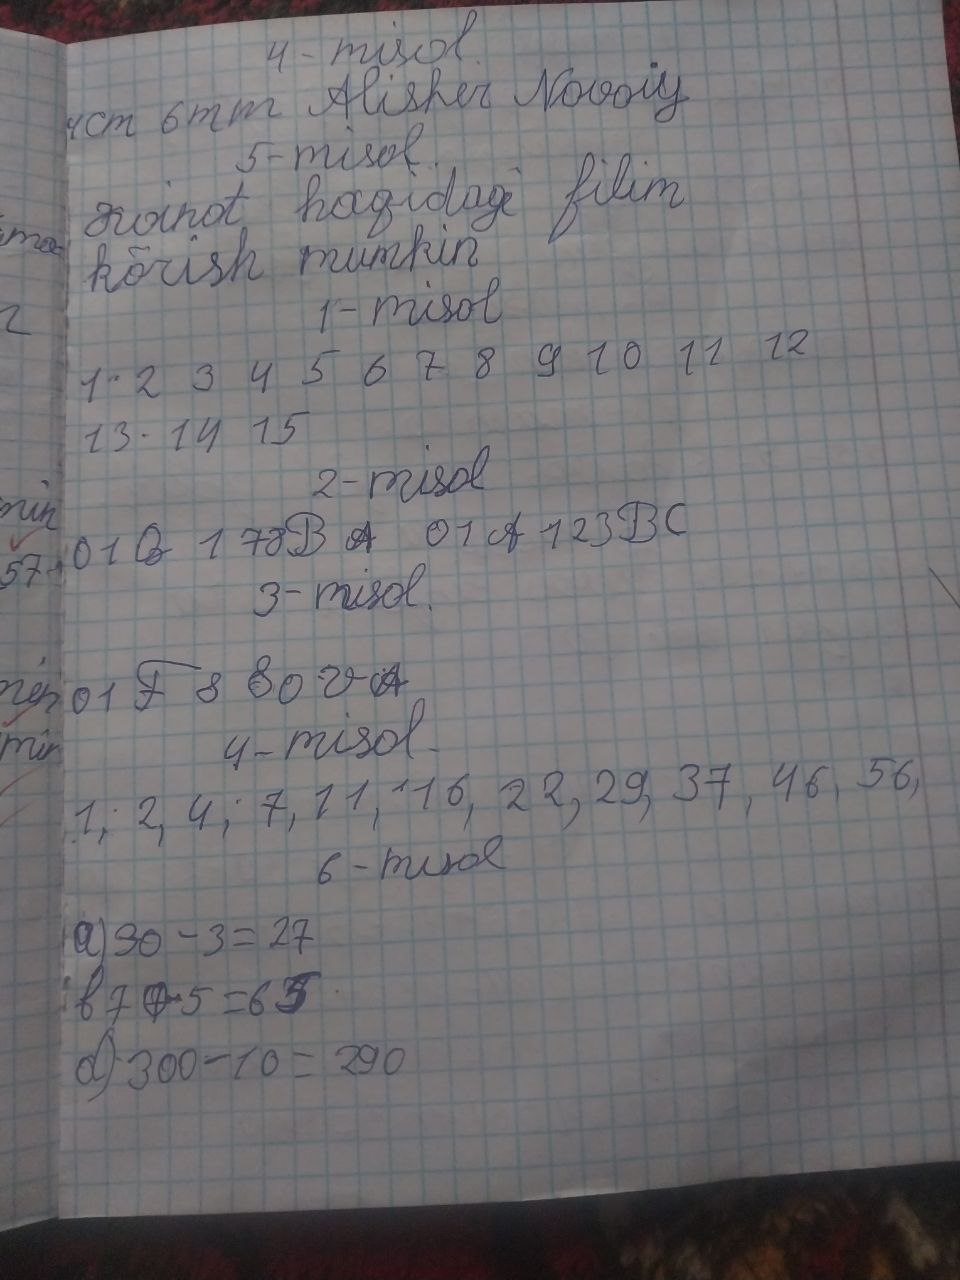 4-misol.
4cm 6mm Alisher Novoiy
5-misol.
haqidagi filim
körish mumkin
1-misol
1. 2 3 4 5 6 7 8 9 10 11 12
13. 14 15
2-misol
01 178B A 01 A 123BC
3-misol.
01 F 8 80 V A
4-misol.
1, 2, 4; 7, 11, 16, 22, 29, 37, 46, 56,
6-misol
a) 30-3=27
b 70-5=65
d) 300-10= 290
min
57
min